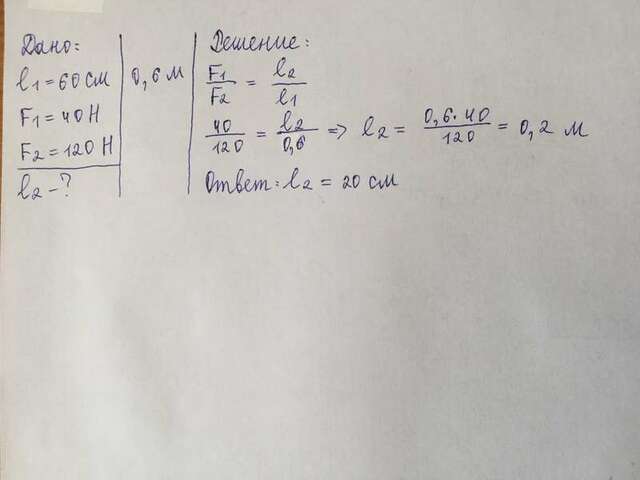 Дано:
l1 = 60 см
0,6 м
F1 = 40 Н
F2 = 120 Н
l2 - ?
Решение:
F1/F2 = l2/l1
40/120 = l2/0,6 => l2 = 0,6·40/120 = 0,2 м
Ответ: l2 = 20 см